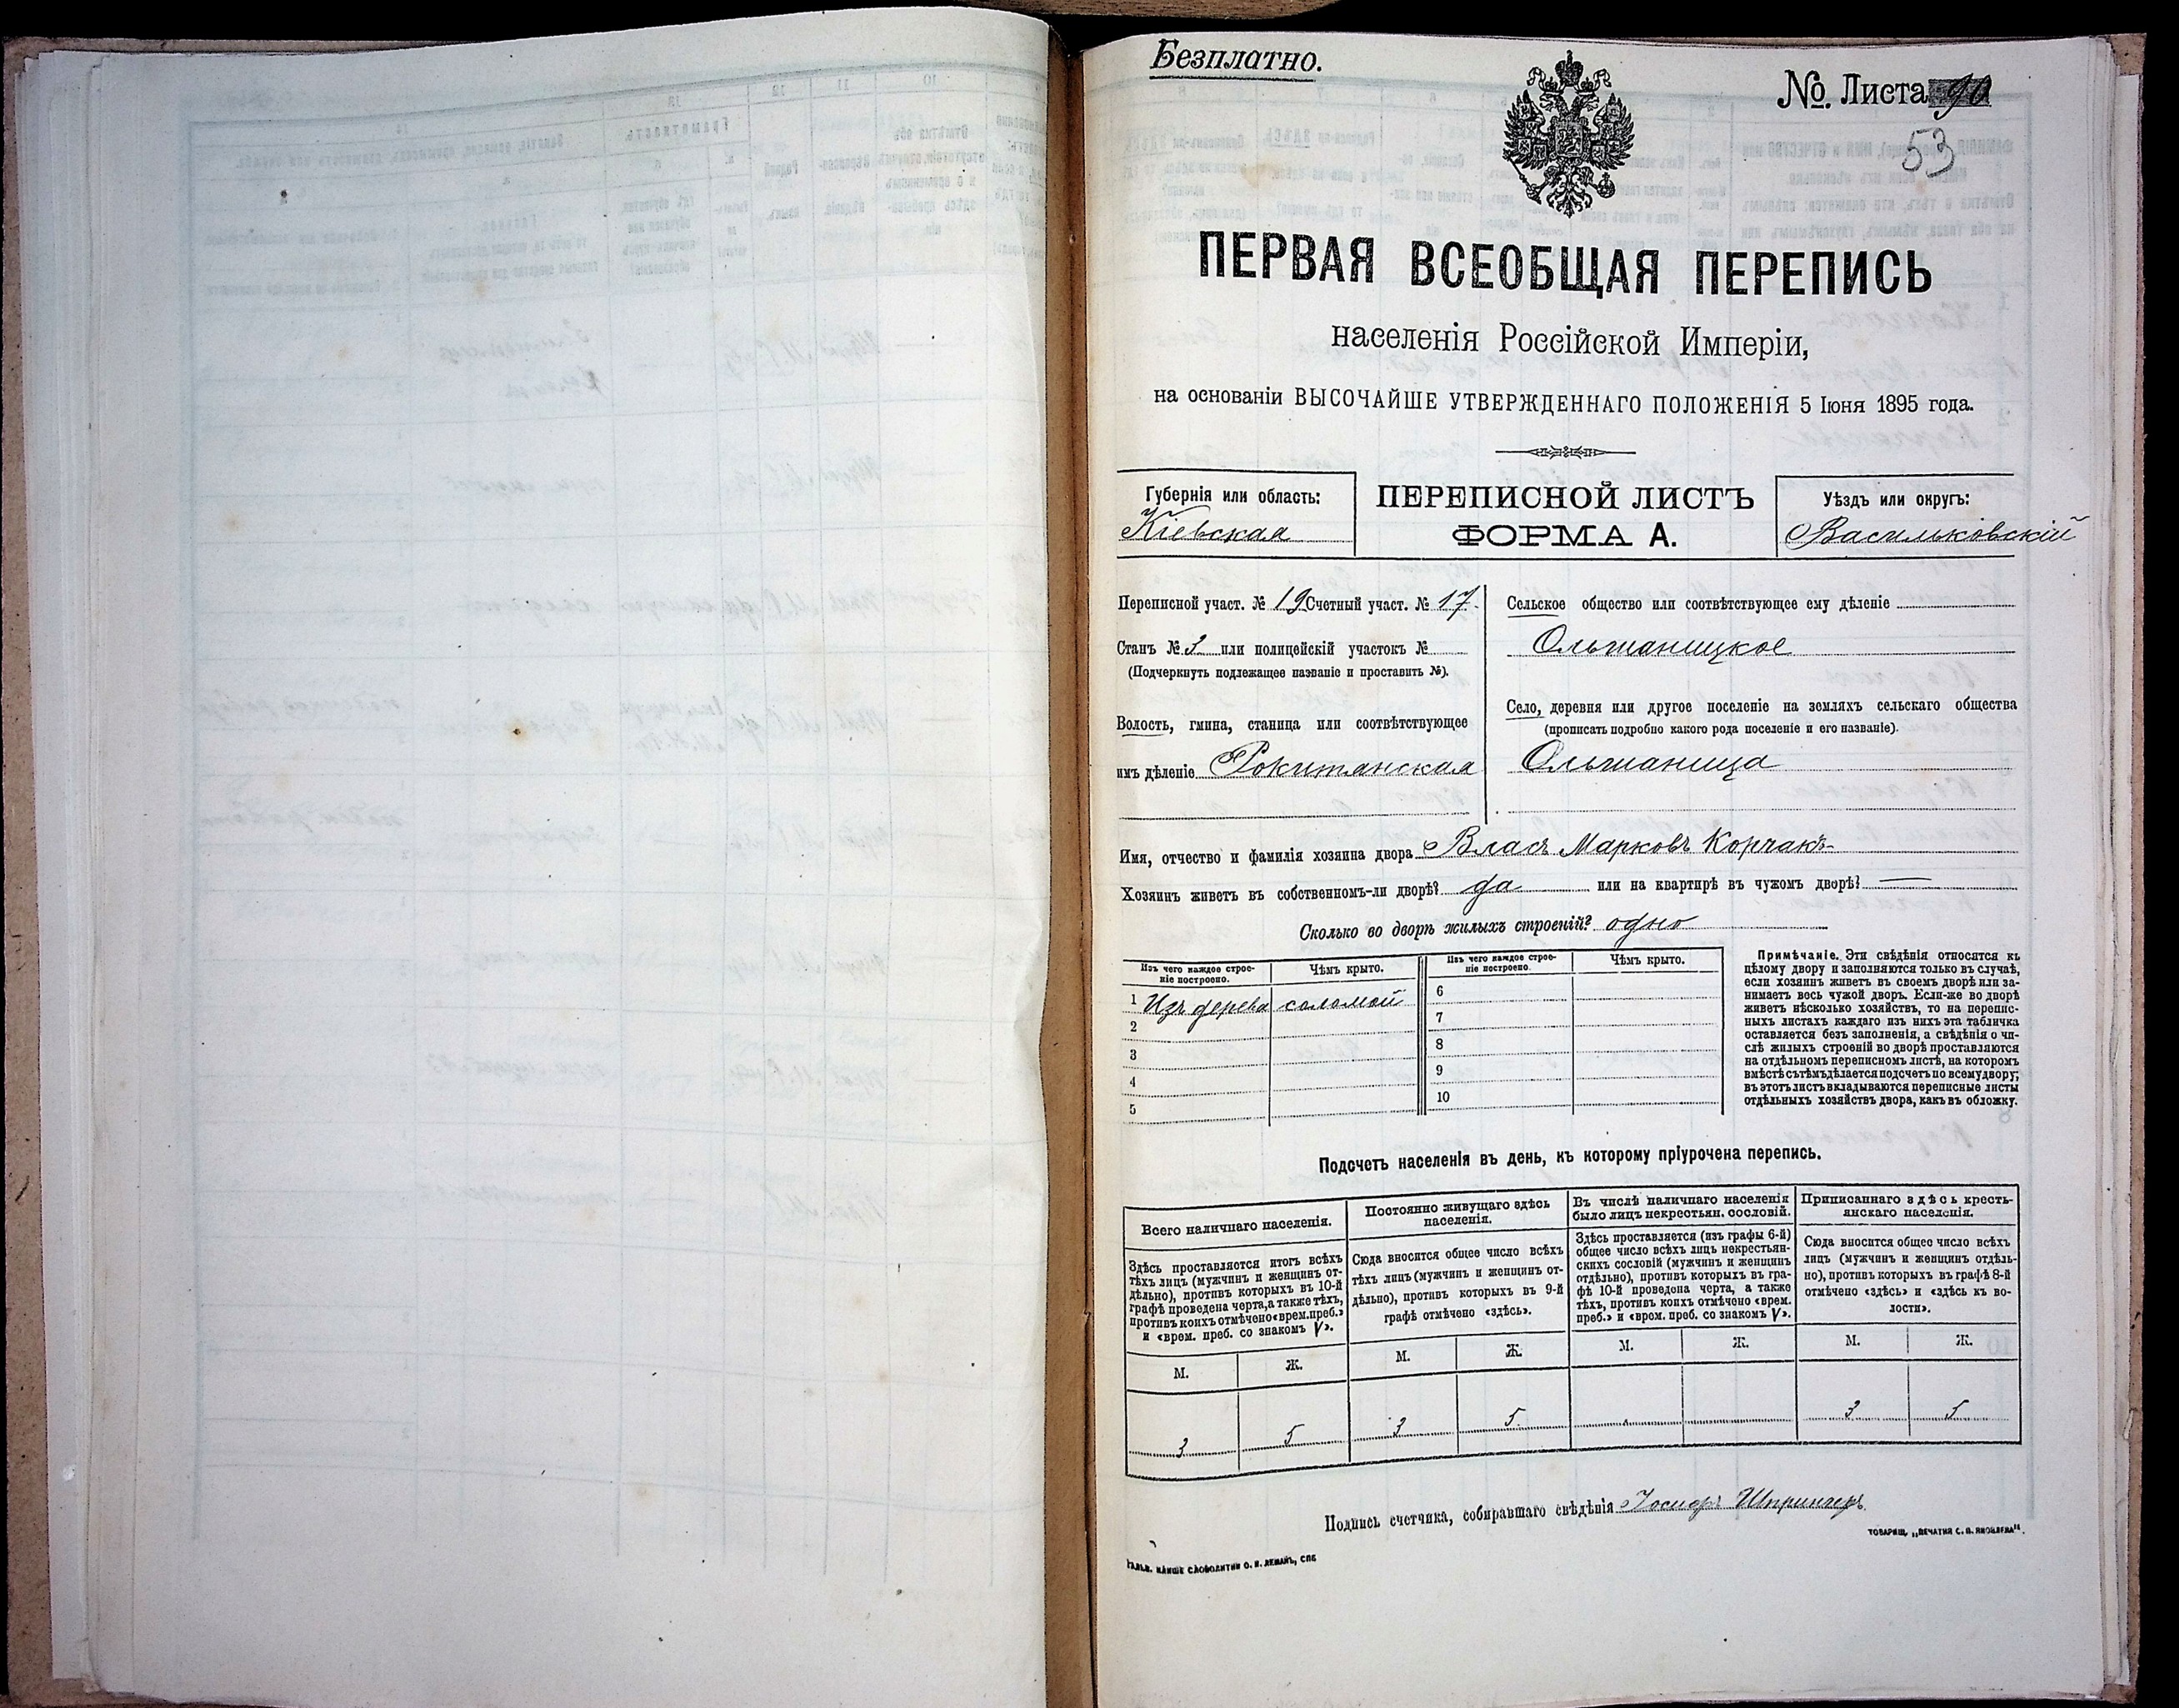 Безплатно.
№ Листа 90
53
ПЕРВАЯ ВСЕОБЩАЯ ПЕРЕПИСЬ
населенія Россійской Имперіи,
на основаніи ВЫСОЧАЙШЕ УТВЕРЖДЕННАГО ПОЛОЖЕНІЯ 5 Іюня 1895 года.
Губернія или область:
Кіевская
ПЕРЕПИСНОЙ ЛИСТЪ
ФОРМА А.
Уѣздъ или округъ:
Васильковскій
Переписной участ. № 19 Счетный участ. № 17.
Станъ № 3 или полицейскій участокъ №
(Подчеркнуть подлежащее названіе и проставить №).
Волость, гмина, станица или соотвѣтствующее
имъ дѣленіе Рокитянская
Сельское общество или соотвѣтствующее ему дѣленіе
Ольшаницкое
Село, деревня или другое поселеніе на земляхъ сельскаго общества
(прописать подробно какого рода поселеніе и его названіе).
Ольшаница
Имя, отчество и фамилія хозяина двора Власъ Марковъ Корчакъ
Хозяинъ живетъ въ собственномъ-ли дворѣ? да или на квартирѣ въ чужомъ дворѣ? —
Сколько во дворѣ жилыхъ строеній? одно
Изъ чего каждое строе-
ніе построено.
Чѣмъ крыто.
1 Изъ дерева соломой
2
3
4
5
Изъ чего каждое строе-
ніе построено.
Чѣмъ крыто.
6
7
8
9
10
Примѣчаніе. Эти свѣдѣнія относятся къ
цѣлому двору и заполняются только въ случаѣ,
если хозяинъ живетъ въ своемъ дворѣ или за-
нимаетъ весь чужой дворъ. Если-же во дворѣ
живетъ нѣсколько хозяйствъ, то на перепис-
ныхъ листахъ каждаго изъ нихъ эта табличка
оставляется безъ заполненія, а свѣдѣнія о чи-
слѣ жилыхъ строеній во дворѣ проставляются
на отдѣльномъ переписномъ листѣ, на которомъ
вмѣстѣ съ тѣмъ дѣлается подсчетъ по всему двору;
въ этотъ листъ вкладываются переписные листы
отдѣльныхъ хозяйствъ двора, какъ въ обложку.
Подсчетъ населенія въ день, къ которому пріурочена перепись.
Всего наличнаго населенія.
Здѣсь проставляется итогъ всѣхъ
тѣхъ лицъ (мужчинъ и женщинъ от-
дѣльно), противъ которыхъ въ 10-й
графѣ проведена черта, а также тѣхъ,
противъ коихъ отмѣчено «врем. преб.»
и «врем. преб. со знакомъ V».
М. Ж.
3 5
Постоянно живущаго здѣсь
населенія.
Сюда вносится общее число всѣхъ
тѣхъ лицъ (мужчинъ и женщинъ от-
дѣльно), противъ которыхъ въ 9-й
графѣ отмѣчено «здѣсь».
М. Ж.
3 5
Въ числѣ наличнаго населенія
было лицъ некрестьян. сословій.
Здѣсь проставляется (изъ графы 6-й)
общее число всѣхъ лицъ некрестьян-
скихъ сословій (мужчинъ и женщинъ
отдѣльно), противъ которыхъ въ гра-
фѣ 10-й проведена черта, а также
тѣхъ, противъ коихъ отмѣчено «врем.
преб.» и «врем. преб. со знакомъ V».
М. Ж.
Приписаннаго здѣсь кресть-
янскаго населенія.
Сюда вносится общее число всѣхъ
лицъ (мужчинъ и женщинъ отдѣль-
но), противъ которыхъ въ графѣ 8-й
отмѣчено «здѣсь» и «здѣсь къ во-
лости».
М. Ж.
3 5
Подпись счетчика, собиравшаго свѣдѣнія Іосифъ Шпрингеръ
ТОВАРИЩ. „ПЕЧАТНЯ С. П. ЯКОВЛЕВА".
ГАЛЬВ. КЛИШЕ СЛОВОЛИТНИ О. И. ЛЕМАНЪ, СПБ